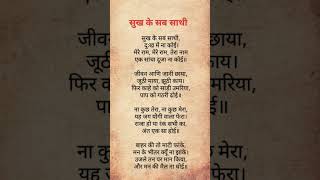 सुख के सब साथी
सुख के सब साथी,
दुःख में ना कोई।
मेरे राम, मेरे राम, तेरा नाम
एक सांचा दूजा ना कोई॥
जीवन आनि जानी छाया,
जूठी माया, झूठी काया।
फिर काहे को साडी उमरिया,
पाप को गठरी ढोई॥
ना कुछ तेरा, ना कुछ मेरा,
यह जग योगी वाला फेरा।
राजा हो या रंक सभी का,
अंत एक सा होई॥
बाहर की तो माटी फांके,
मन के भीतर क्यूँ ना झांके।
उजले तन पर मान किया,
और मन की मैल ना धोई॥
जीव
जूठ
फिर व
पाप
ना कुछ
यह ज
राजा
अं
बाहर
मन वे
उजल
और